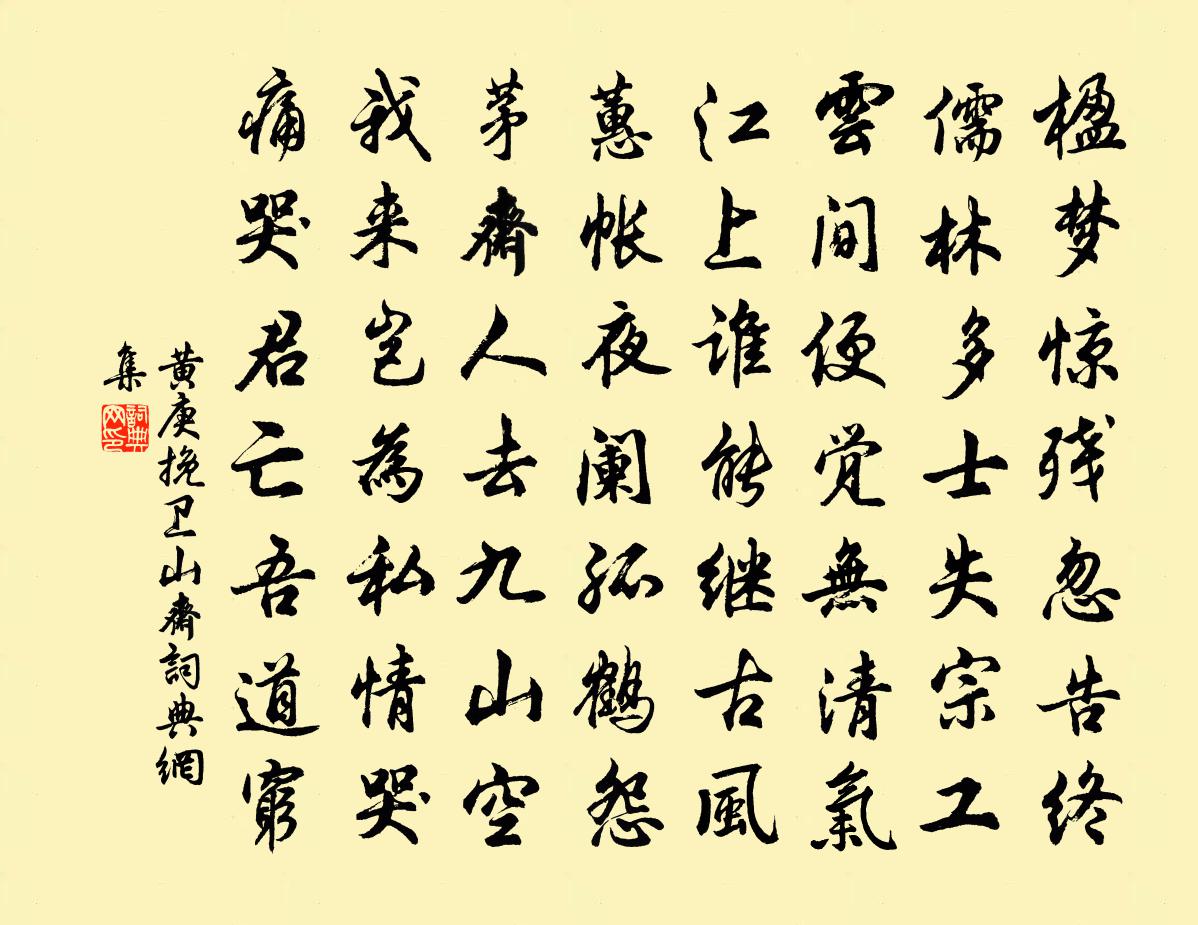 楹梦惊残忽告终
儒林多士失宗工
雲间便觉無清氣
江上谁能继古風
蕙帐夜阑孤鹤怨
茅齋人去九山空
我来岂為私情哭
痛哭君亡吾道窮
黄庚挽卫山齋詞典網
集
詞典
网印